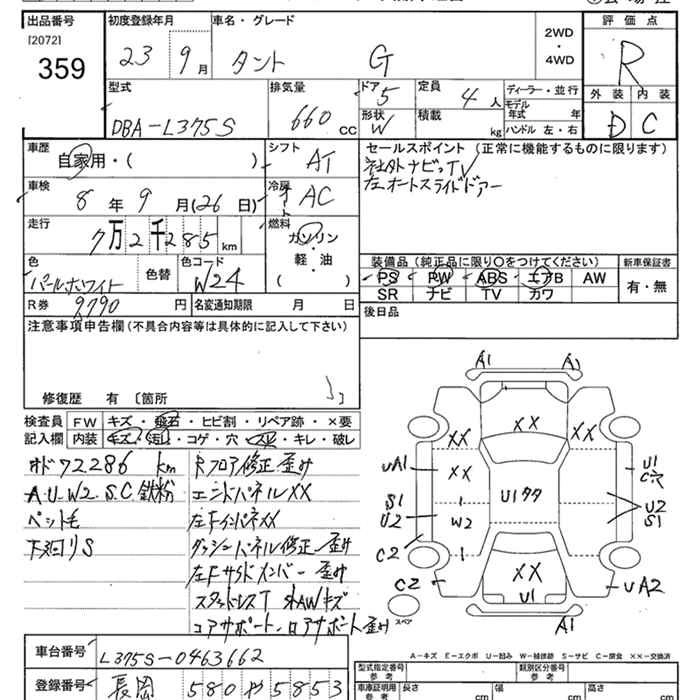 出品番号
[2072]
359
初度登録年月
23 9月
車名・グレード
タント G
2WD
・
4WD
評価点
R
外装 内装
D C
型式
DBA-L375S
排気量
660 CC
ドア 5
形状 W
定員 4人
積載 kg
ディーラー・並行
モデル年式 年
ハンドル 左・右
車歴
自家用・( )
シフト
AT
セールスポイント (正常に機能するものに限ります)
社外ナビ、TV
左オートスライドドアー
車検
8年 9月(26日)
冷房
オート AC
走行
7万2千285km
燃料
ガソリン
・
軽・油
( )
色
パールホワイト
色替
色コード
W24
装備品 (純正品に限り〇をつけてください)
PS PW ABS エアB AW
SR ナビ TV カワ
新車保証書
有・無
R券 9790円
名変通知期限 月 日
後日品
注意事項申告欄(不具合内容等は具体的に記入して下さい)
修復歴 有 〔箇所 〕
検査員
記入欄
FW キズ・飛石・ヒビ割・リペア跡・×要
内装 キズ・汚れ・コゲ・穴・スレ・キレ・破レ
オド72286km
A.U.W2.S.C.鉄粉
ペット毛
下廻りS
Rフロア修正歪み
エンドパネルXX
左FインパネXX
ダッシーパネル修正歪み
左Fサイドメンバー歪み
スタッドレスT 外AWキズ
コアサポート・ロアサポート歪み
A1 A1
XX
XX XX
UA1 XX U1
C穴
S1 U1タタ U2
U2 W2 S1
C2
C2 XX UA2
U1
スペア
A1
A-キズ E-エクボ U-凹み W-補修跡 S-サビ C-腐食 XX-交換済
車台番号
L375S-0463662
登録番号
長岡 580 や 5853
型式指定番号
参考
類別区分番号
参考
車庫証明用
参考
長さ cm
幅 cm
高さ cm